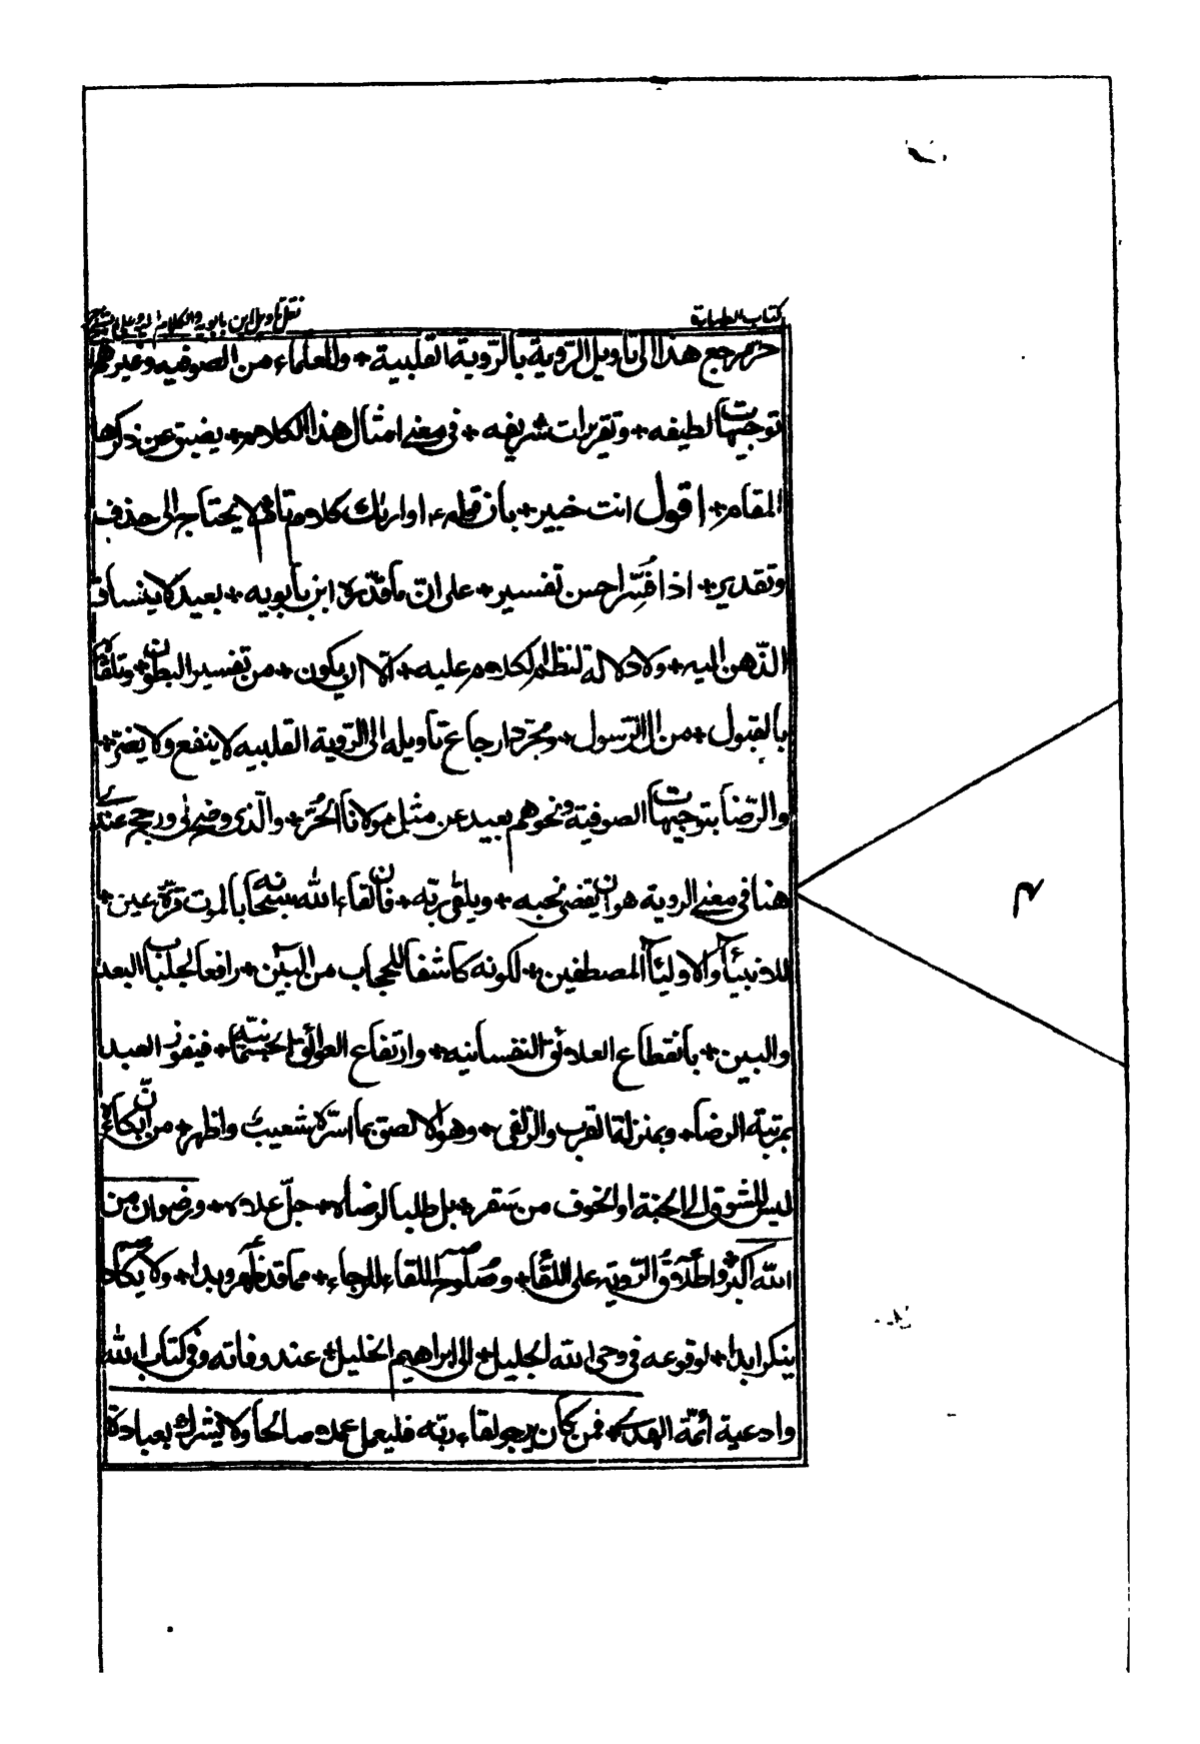 كتاب الطهارة
نقل تاويل ابن بابويه والكلام
مرجع هذا الى تاويل الرّوية بالرّوية القلبية + وللعلماء من الصوفيه وغيرهم
توجيهات لطيفه + وتقريرات شريفه + فى معنے امثال هذا الكلام + يضيق عن ذكرها
المقام + اقول انت خبير + بان قوله او اراك كلام تام لا يحتاج الى حذف
وتقدير + اذا فُسِّر احسن تفسير + على انّ ما قدّره ابن بابويه + بعيد لا ينساق
الذّهن اليه + ولا دلالة لنظم الكلام عليه + الّا ان يكون + من تفسير البطون + وتلقّا
بالقبول + من ال الرّسول + ومجرّد ارجاع تاويله الى الرّوية القلبيه لا ينفع ولا يغتر +
والرّضا بتوجيهات الصوفية ونحوهم بعيد عن مثل مولانا الحُر + والّذى وضح لى ورجح عندے
هنا فى معنے الروية هو ان يقضى نحبه + ويلقى ربّه + فان لقاء الله سبحانه بالموت قرّة عين +
للانبيآء والاوليآء المصطفين + لكونه كاشفا للحجاب من البين + رافعا لجلباب البعد
والبين + بانقطاع العلائق النفسانيه + وارتفاع العوائق الجسمانيّه + فيفوز العبد
بمرتبة الرضاء + وبمنزلة القرب والزلفى + وهو الاصق بما اسرّه شعيبؑ واظهر + من انّ بكاءه
ليس للشوق الى الجنة او الخوف من سقر + بل طلبا لرضاه + جلّ علاه + ورضوان من
الله اكبر + واطلاق الرّوية على اللقاء + وصلوح اللقاء للرجاء + مما قد ظهر وبدا + ولا يكاد
ينكر ابدا + لوقوعه فى وحى الله الجليل + الى ابراهيم الخليل + عند وفاته وفى كتاب الله
وادعية أئمّة الهدے + فمن كان يرجو لقاء ربّه فليعمل عملا صالحا ولا يشرك بعبادة